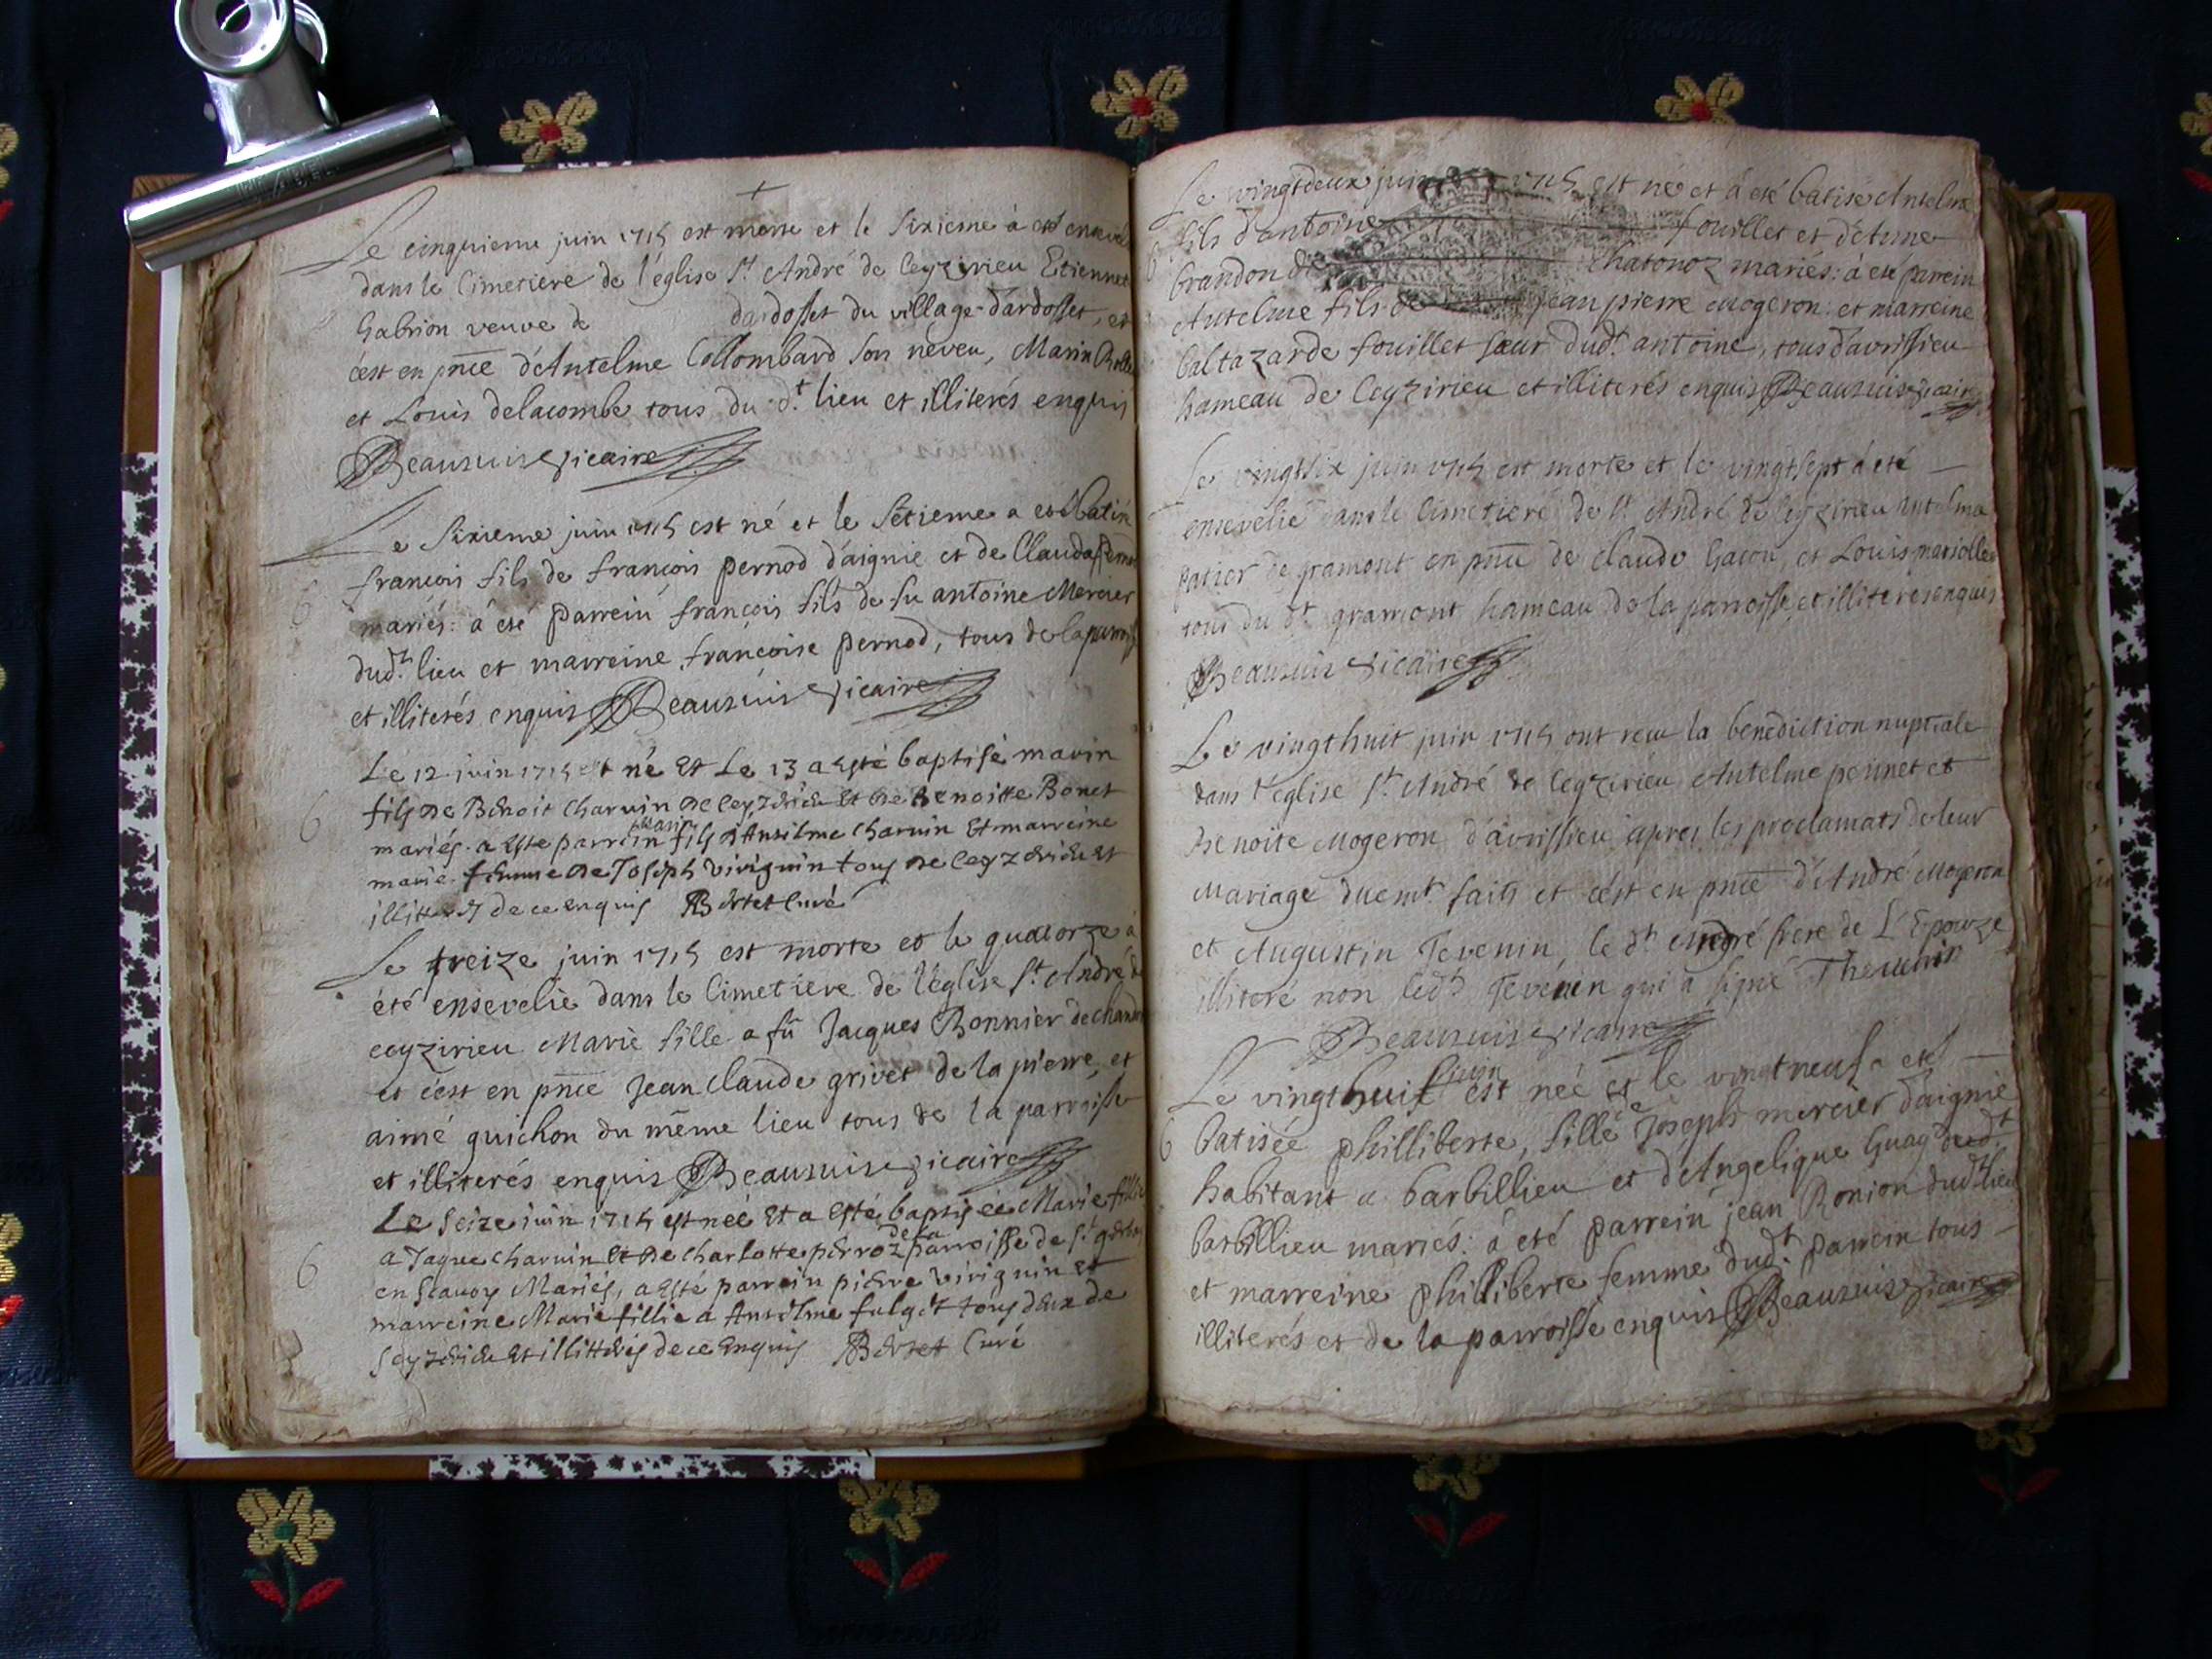 Le cinquieme juin 1715 est morte et le sixieme à esté ensevelie
dans le Cimetiere de l'église St. André de Ceyzirieu Etiennet
Gabrion veuve de dardosset du village dardosset, et
c'est en pnce d'Antelme Collombard son neveu, Marin
et Louis delacombe tous du dt. lieu et illiterés enquis
Beausuire vicaire
Le sixieme juin 1715 est né et le sétieme a esté batisé
françois fils de françois pernod d'aignie et de Clauda
mariés: à esté parrein françois fils de fu antoine Mercier
dudt. lieu et marreine françoise pernod, tous de la parroisse
et illiterés enquis Beausuire vicaire
Le 12 juin 1715 est né Et Le 13 a esté baptisé marin
fils de Benoit charuin de ceyzerieu Et de Benoitte Bonet
mariés. a este parrein marin fils d'Anselme charuin Et marreine
marie femme de Joseph viriguin tous de ceyzerieu Et
illitterés de ce enquis Bertet Curé
Le treize juin 1715 est morte et le quatorze à
été ensevelie dans le Cimetiere de l'église St. André de
ceyzirieu Marie fille a fû Jacques Bonnier de
et c'est en pnce Jean Claude grivet de la pierre, et
aimé guichon du même lieu tous de la parroisse
et illiterés enquis Beausuire vicaire
Le seize juin 1715 est née Et a esté baptisée Marie fillie
a Jaque charuin Et de charlotte perroz de la parroisse de St.
en scavoy Mariés, a esté parrein pierre viriguin et
marreine Marie fillie a Anselme fulget tous deux de
Ceyzerieu Et illitterés de ce enquis Bertet Curé
Le vingtdeux juin 1715 est né et à eté batisé Antelme
fils d'antoine fouillet et d'Anne
brandon de chatonoz mariés: à eté parrein
Antelme fils de jean pierre Mogeron: et marreine
baltazarde fouillet sœur dudt. antoine, tous d'avrissieu
hameau de Ceyzirieu et illiterés enquis Beausuire vicaire
Le vingtsix juin 1715 est morte et le vingtsept à eté
ensevelie dans le Cimetiere de St. André de Ceyzirieu Antelma
patier de gramont en pnce de Claude Gacon, et Louis mariolle
tous du dt. gramont hameau de la parroisse, et illiterés enquis
Beausuire vicaire
Le vingthuit juin 1715 ont receu la benediction nuptiale
dans l'église St. André de Ceyzirieu Antelme pennet et
Benoite Mogeron d'avrissieu apres les proclamats de leur
Mariage duemt. faits et c'est en pnce d'André Mogeron
et Augustin Tevenin, le dt. André frere de L'Epouze
illiteré non ledt. Tevenin qui a signé Thevenin
Beausuire vicaire
Le vingthuit juin est née et le vingtneuf a eté
batisée philliberte, fille a Joseph mercier d'aignie
habitant a barbillieu et d'Angelique Guag dudt.
barbillieu mariés: à eté parrein jean Ronion dudt. lieu
et marreine philliberte femme dudt. parrein tous
illiterés et de la parroisse enquis Beausuire vicaire